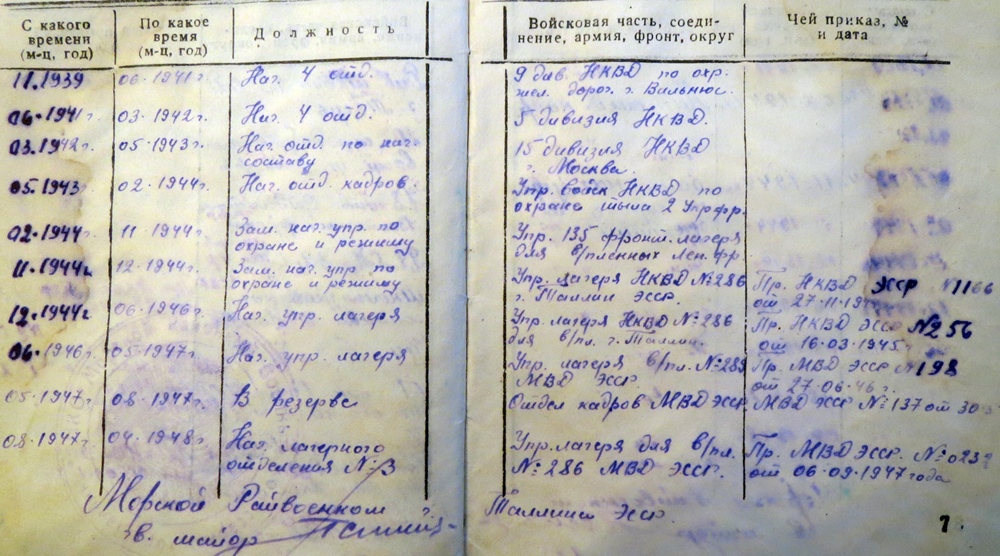 С какого времени (м-ц, год)
По какое время (м-ц, год)
Должность
Войсковая часть, соеди-
нение, армия, фронт, округ
Чей приказ, №
и дата
11.1939 06.1941г. Нач. 4 отд. 9 див. НКВД по охр.
жел. дорог. г. Вильнюс.
06.1941г. 03.1942г. Нач. 4 отд. 5 дивизия НКВД.
03.1942г. 05.1943г. Нач. отд. по нач. 15 дивизия НКВД
составу г. Москва.
05.1943 02.1944г. Нач. отд. кадров. Упр. войск НКВД по
охране тыла 2 Укр фр.
02.1944г. 11.1944г. Зам. нач. упр. по Упр. 135 фронт. лагеря
охране и режиму для в/пленных Лен. фр.
11.1944г. 12.1944г. Зам. нач. упр. по Упр. лагеря НКВД № 286 Пр. НКВД ЭССР №1166
охране и режиму г. Таллин ЭССР. от 27.11.
12.1944г. 06.1946г. Нач. упр. лагеря Упр. лагеря НКВД № 286 Пр. НКВД ЭССР №256
для в/пл. г. Таллин. от 16.03.1945
06.1946г. 05.1947г. Нач. упр. лагеря Упр. лагеря в/пл. № 289 Пр. МВД ЭССР №198
МВД ЭССР. от 27.06.46г.
05.1947г. 08.1947г. В резерве Отдел кадров МВД ЭССР МВД ЭССР № 137 от 30
08.1947г. 04.1948г. Нач. лагерного Упр. лагеря для в/пл. Пр. МВД ЭССР. №
отделения № 3 № 286 МВД ЭССР. от 06.09.1947 года
Морской Райвоенком г. Таллина ЭССР
майор
7